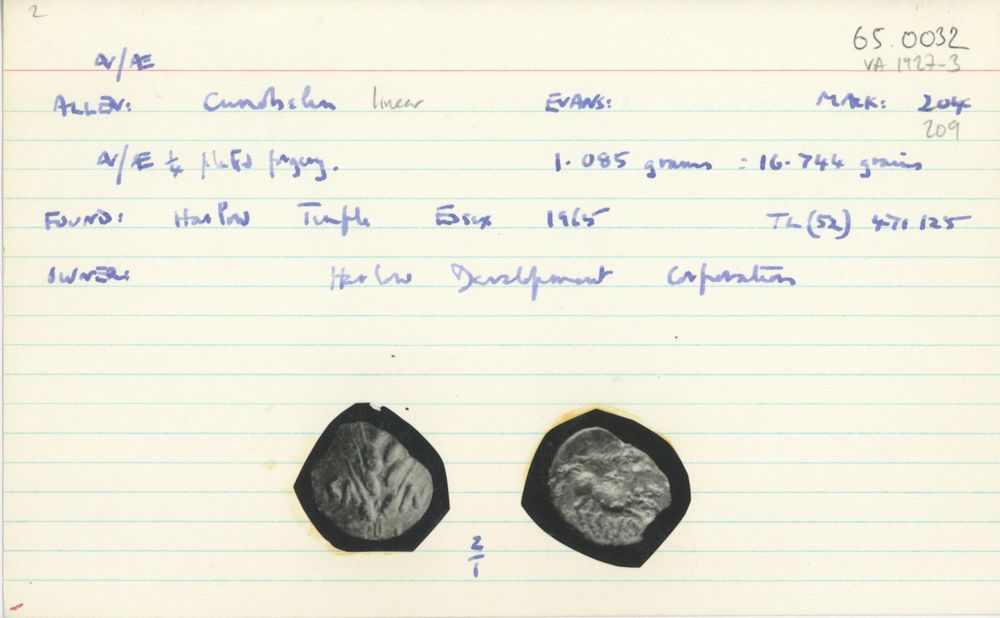 2
65.0032
AV/Æ
VA 1927-3
ALLEN: Cunobelin linear EVANS: MACK: 204
209
AV/Æ 1/4 plated forgery. 1.085 grams = 16.744 grains
FOUND: Harlow Temple Essex 1965 TL (52) 471 125
OWNER: Harlow Development Corporation
2/1